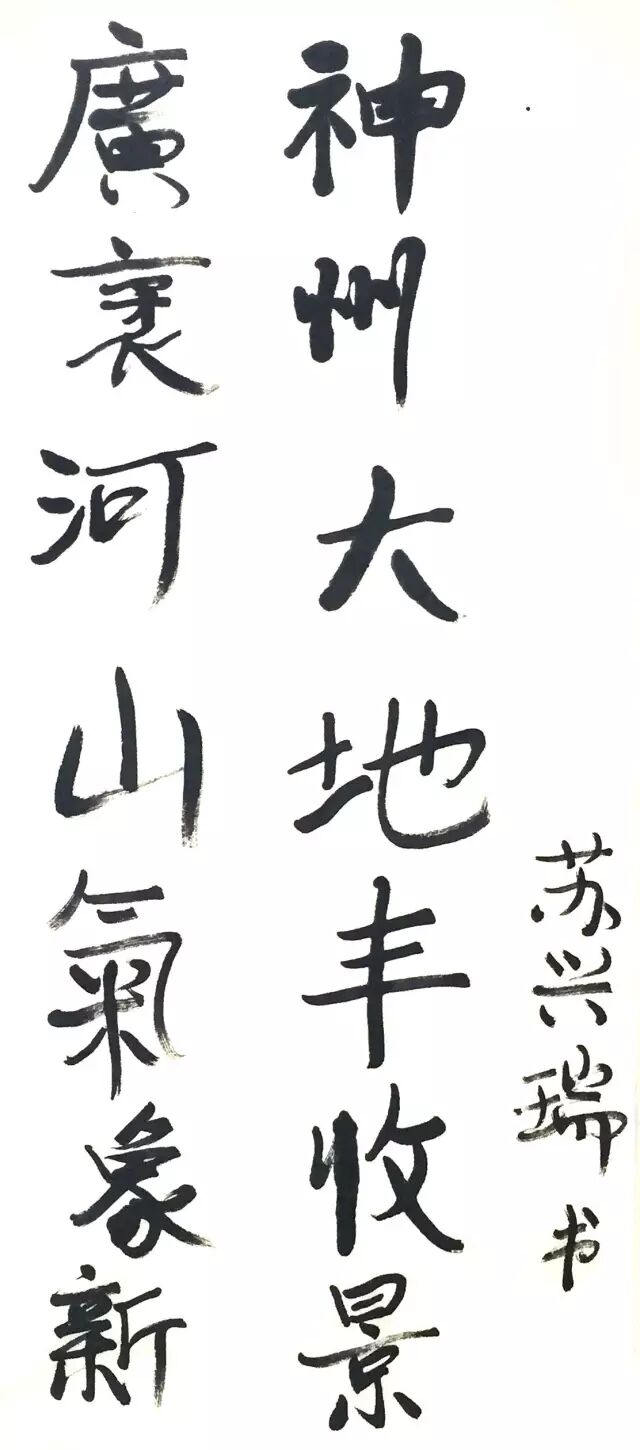 神州大地丰收景
廣袤河山氣象新
苏兴瑞书